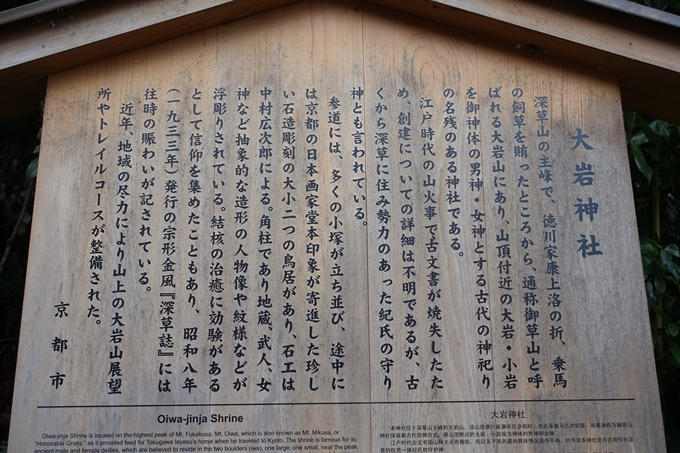 大岩神社
深草山の主峰で、徳川家康上洛の折、乗馬
の飼草を賄ったところから、通称御草山と呼
ばれる大岩山にあり、山頂付近の大岩・小岩
を御神体の男神・女神とする古代の神祀り
の名残のある神社である。
江戸時代の山火事で古文書が焼失したた
め、創建についての詳細は不明であるが、古
くから深草に住み勢力のあった紀氏の守り
神とも言われている。
参道には、多くの小塚が立ち並び、途中に
は京都の日本画家堂本印象が寄進した珍し
い石造彫刻の大小二つの鳥居があり、石工は
中村広次郎による。角柱であり地蔵、武人、女
神など抽象的な造形の人物像や紋様などが
浮彫りされている。結核の治癒に効験がある
として信仰を集めたこともあり、昭和八年
(一九三三年)発行の宗形金風『深草誌』には
往時の賑わいが記されている。
近年、地域の尽力により山上の大岩山展望
所やトレイルコースが整備された。
京都市
Oiwa-jinja Shrine
Oiwa-jinja Shrine is located on the highest peak of Mt. Fukakusa, Mt. Oiwa, which is also known as Mt. Mikusa, or
"Honorable Grass," as it provided feed for Tokugawa Ieyasu's horse when he traveled to Kyoto. The shrine is famous for its
ancient male and female deities, which are believed to reside in the two boulders (iwa), one large, one small, near the peak.
大岩神社